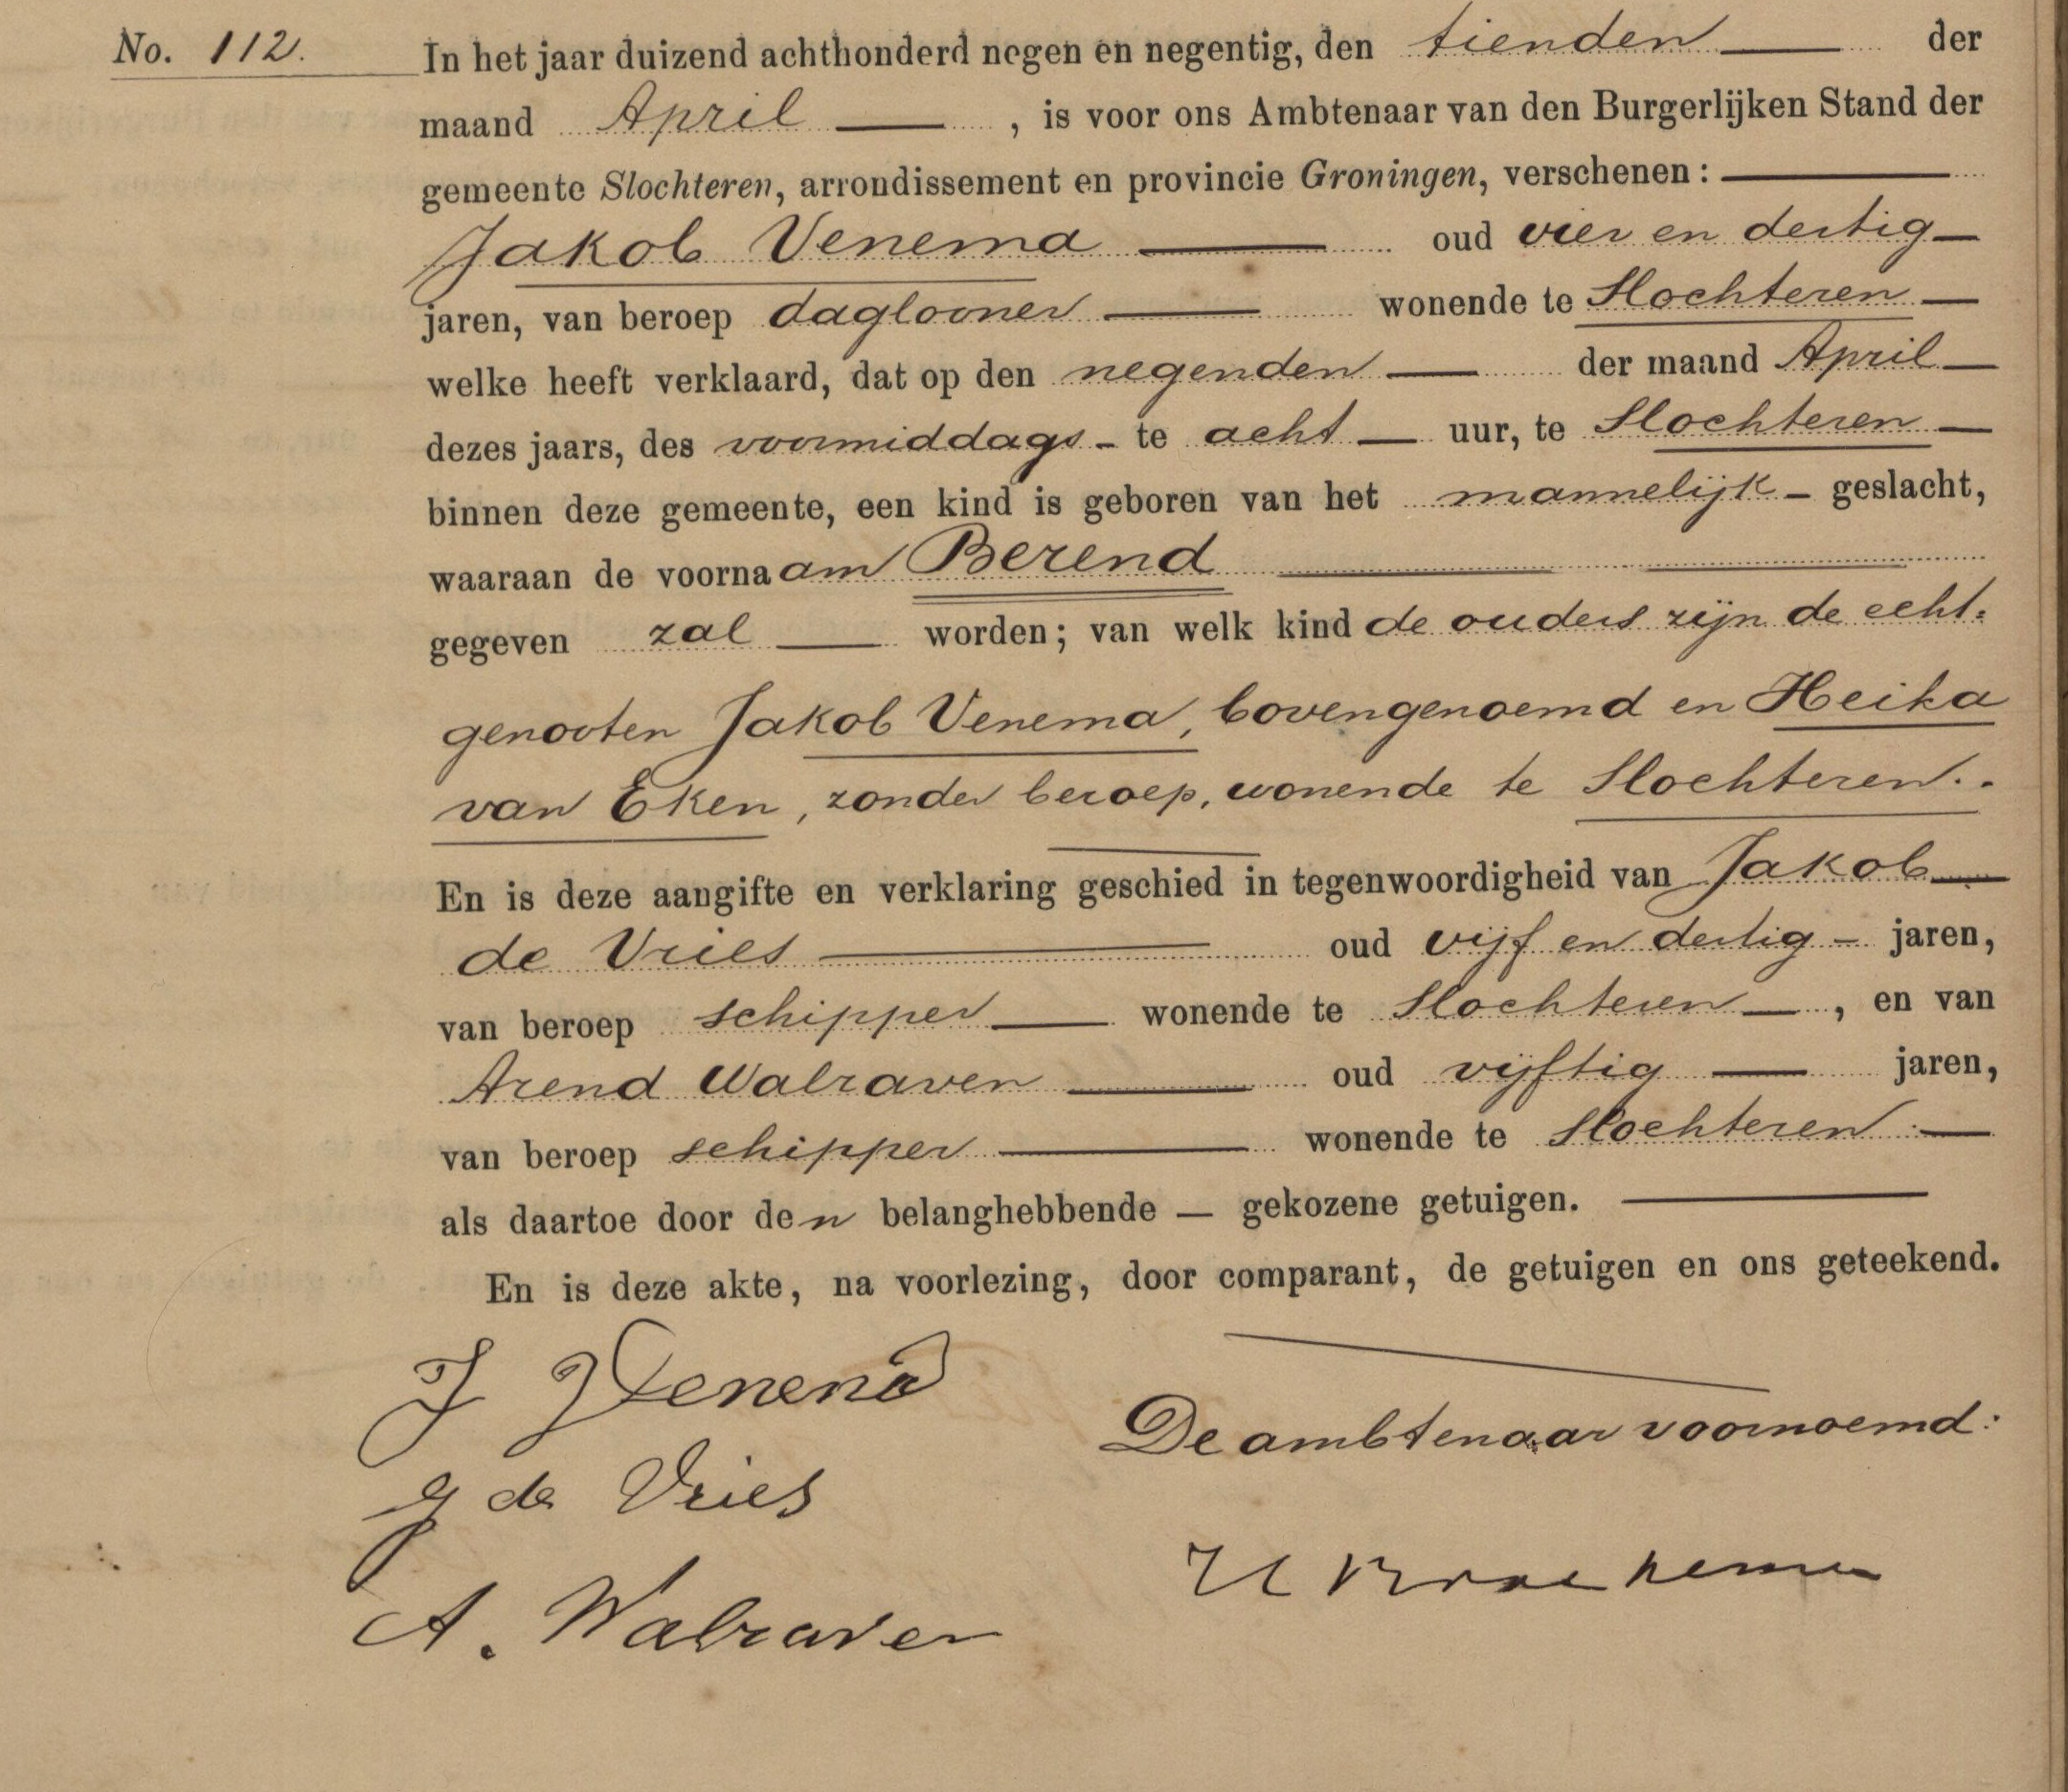 No. 112. In het jaar duizend achthonderd negen en negentig, den tienden der
maand April, is voor ons Ambtenaar van den Burgerlijken Stand der
gemeente Slochteren, arrondissement en provincie Groningen, verschenen:
Jakob Venema oud vier en dertig
jaren, van beroep daglooner wonende te Slochteren
welke heeft verklaard, dat op den negenden der maand April
dezes jaars, des voormiddags te acht uur, te Slochteren
binnen deze gemeente, een kind is geboren van het mannelijk geslacht,
waaraan de voornaam Berend
gegeven zal worden; van welk kind de ouders zijn de echt=
genooten Jakob Venema, bovengenoemd en Heika
van Eken, zonder beroep, wonende te Slochteren.
En is deze aangifte en verklaring geschied in tegenwoordigheid van Jakob
de Vries oud vijf en dertig jaren,
van beroep schipper wonende te Slochteren, en van
Arend Walraven oud vijftig jaren,
van beroep schipper wonende te Slochteren
als daartoe door den belanghebbende — gekozene getuigen.
En is deze akte, na voorlezing, door comparant, de getuigen en ons geteekend.
J Venema
De ambtenaar voornoemd:
J de Vries
A. Walraven